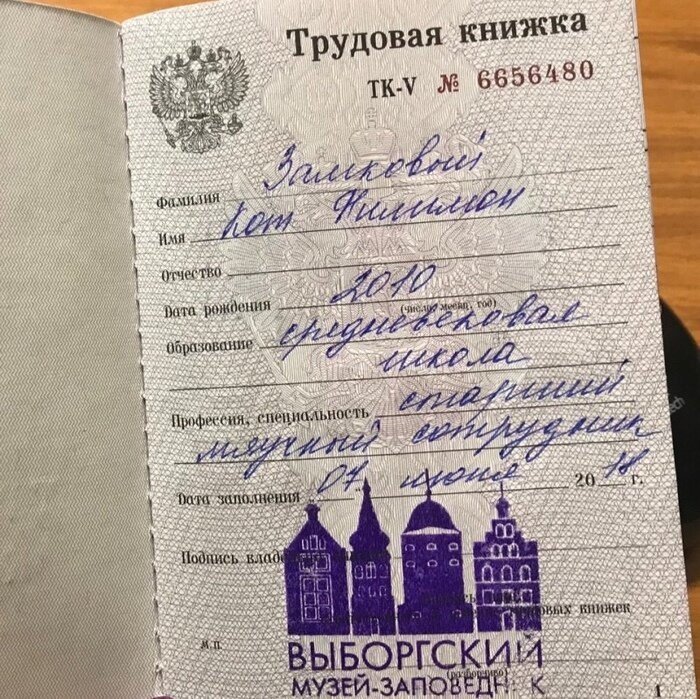 Трудовая книжка
ТК-V № 6656480
Фамилия Замковый
Имя Кот Филимон
Отчество
Дата рождения 2010
(число, месяц, год)
Образование средневековая
школа
Профессия, специальность старший
мяучный сотрудник
Дата заполнения 07 июня 2018 г.
Подпись владельца
трудовых книжек
М.П.
ВЫБОРГСКИЙ
(разборчиво)
МУЗЕЙ-ЗАПОВЕДНИК